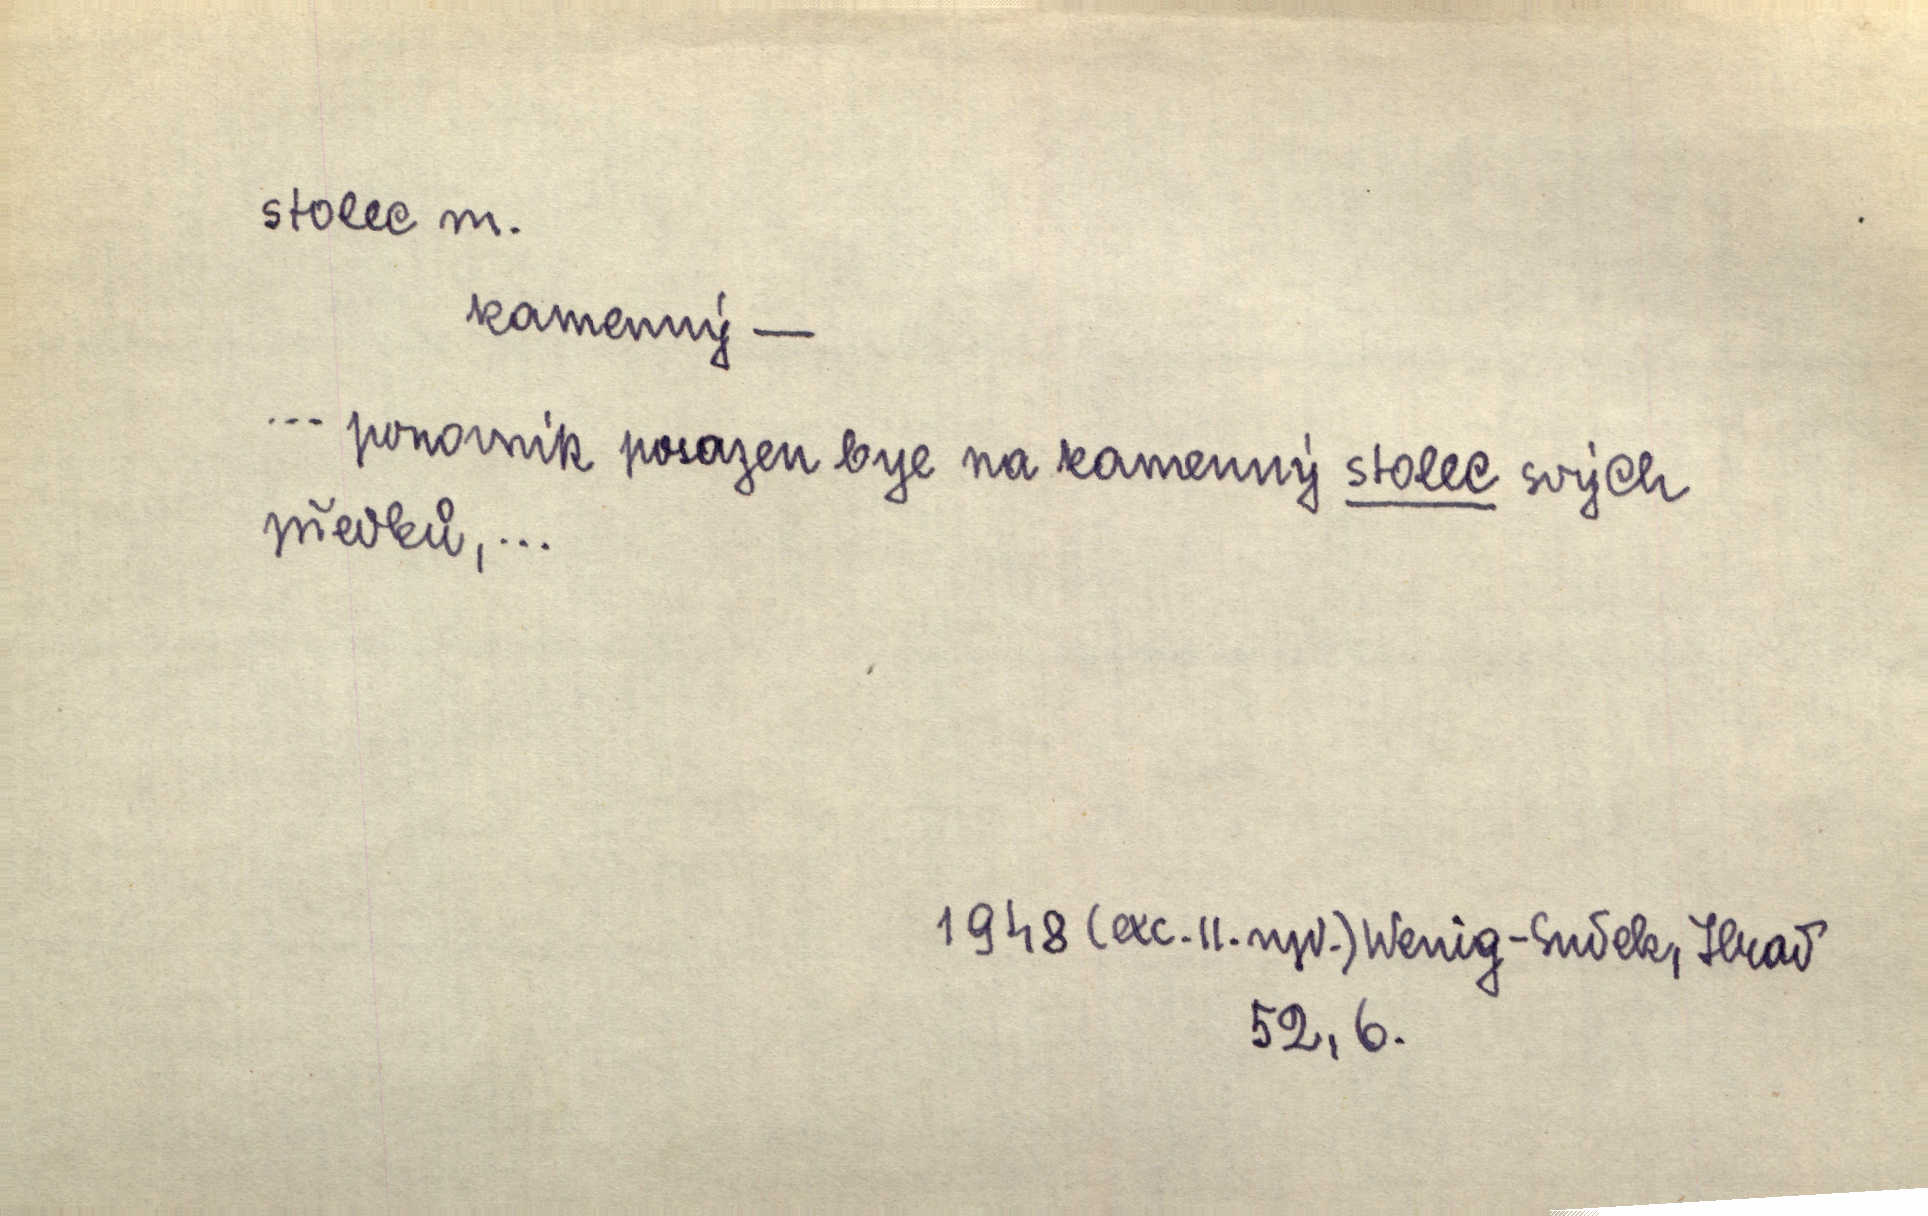 stolec m.
kamenný —
... ponovník posazen byl na kamenný stolec svých
předků, ...
1948 (exc. II. vyd.) Wenig-Sudek, Hrad
52, 6.